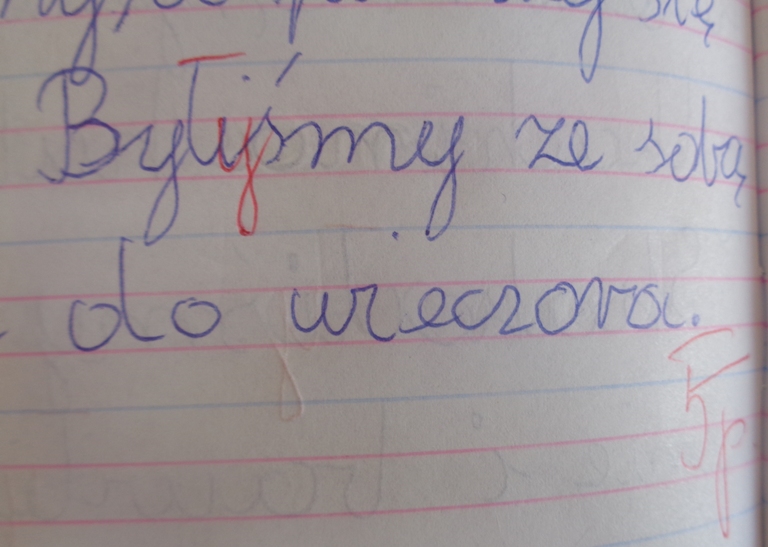 się
Byłyśmy ze sobą
do wieczora.
5p